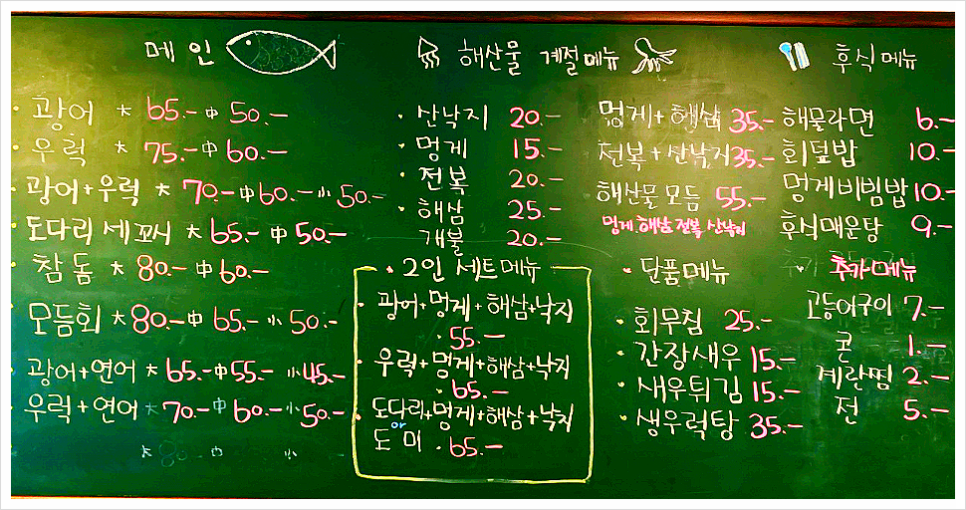 메인
· 광어 大 65.- 中 50.-
· 우럭 大 75.- 中 60.-
· 광어+우럭 大 70.- 中 60.- 小 50.-
· 도다리세꼬시 大 65.- 中 50.-
· 참돔 大 80.- 中 60.-
· 모듬회 大 80.- 中 65.- 小 50.-
· 광어+연어 大 65.- 中 55.- 小 45.-
· 우럭+연어 大 70.- 中 60.- 小 50.-
大 80.- 中 小
해산물 계절메뉴
· 산낙지 20.-
· 멍게 15.-
· 전복 20.-
· 해삼 25.-
· 개불 20.-
멍게+해삼 35.-
전복+산낙지 35.-
해산물모듬 55.-
멍게.해삼.전복 산낙지
· 2인 세트메뉴
· 광어+멍게+해삼+낙지
· 55.-
· 우럭+멍게+해삼+낙지
· 65.-
· 도다리+멍게+해삼+낙지
or
도미 · 65.-
· 단품메뉴
· 회무침 25.-
· 간장새우 15.-
· 새우튀김 15.-
· 생우럭탕 35.-
후식메뉴
해물라면 6.-
회덮밥 10.-
멍게비빔밥 10.-
후식매운탕 9.-
추가메뉴
고등어구이 7.-
콘 1.-
계란찜 2.-
전 5.-